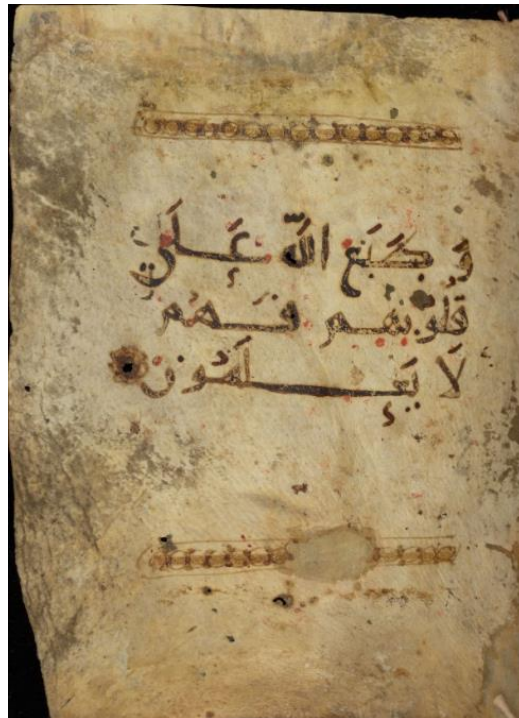 وَطَبَعَ اللَّهُ عَلَىٰ
قُلُوبِهِمْ فَهُمْ
لَا يَعْلَمُونَ